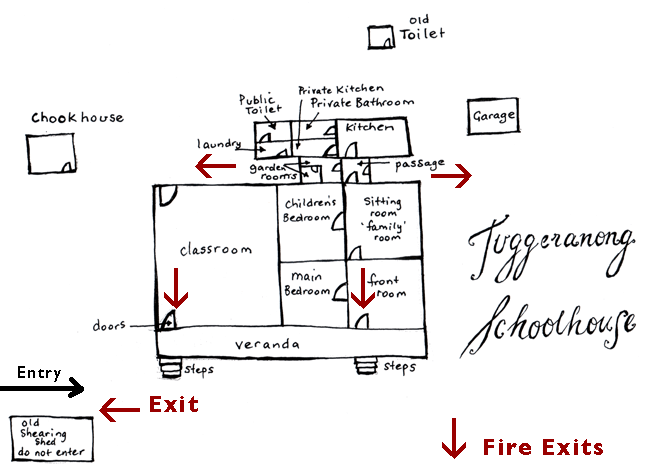 old
Toilet
Chookhouse
Public
Toilet
Private Kitchen
Private Bathroom
Kitchen
Garage
laundry
garden
rooms
passage
children's
Bedroom
Sitting
room
'family'
room
classroom
main
Bedroom
front
room
doors
veranda
steps
steps
Tuggeranong
Schoolhouse
Entry
Exit
old
Shearing
Shed
do not enter
Fire Exits